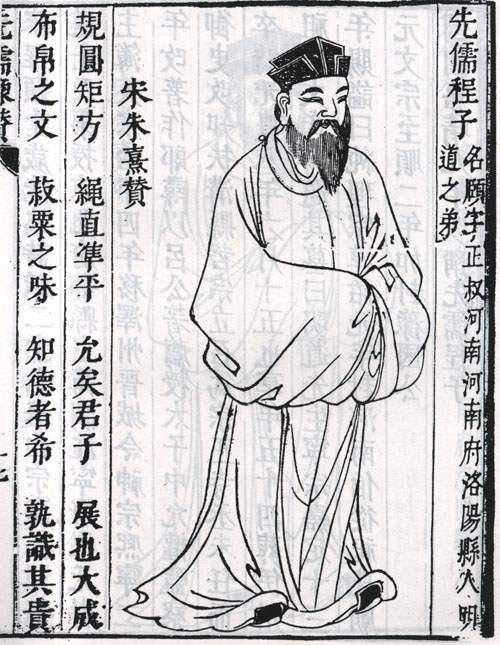 先儒程子
名頤字正叔河南河南府洛陽縣人明
道之弟
宋朱熹賛
規圓矩方 繩直準平 允矣君子 展也大成
布帛之文 菽粟之味 知德者希 孰識其貴